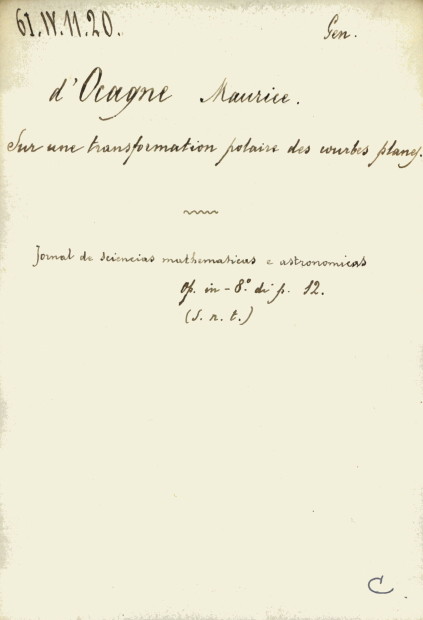 61.IV.11.20. Gen.
d'Ocagne Maurice.
Sur une transformation polaire des courbes planes.
Jornal de sciencias mathematicas e astronomicas
Op. in-8.º di p. 12.
(S. n. t.)
C